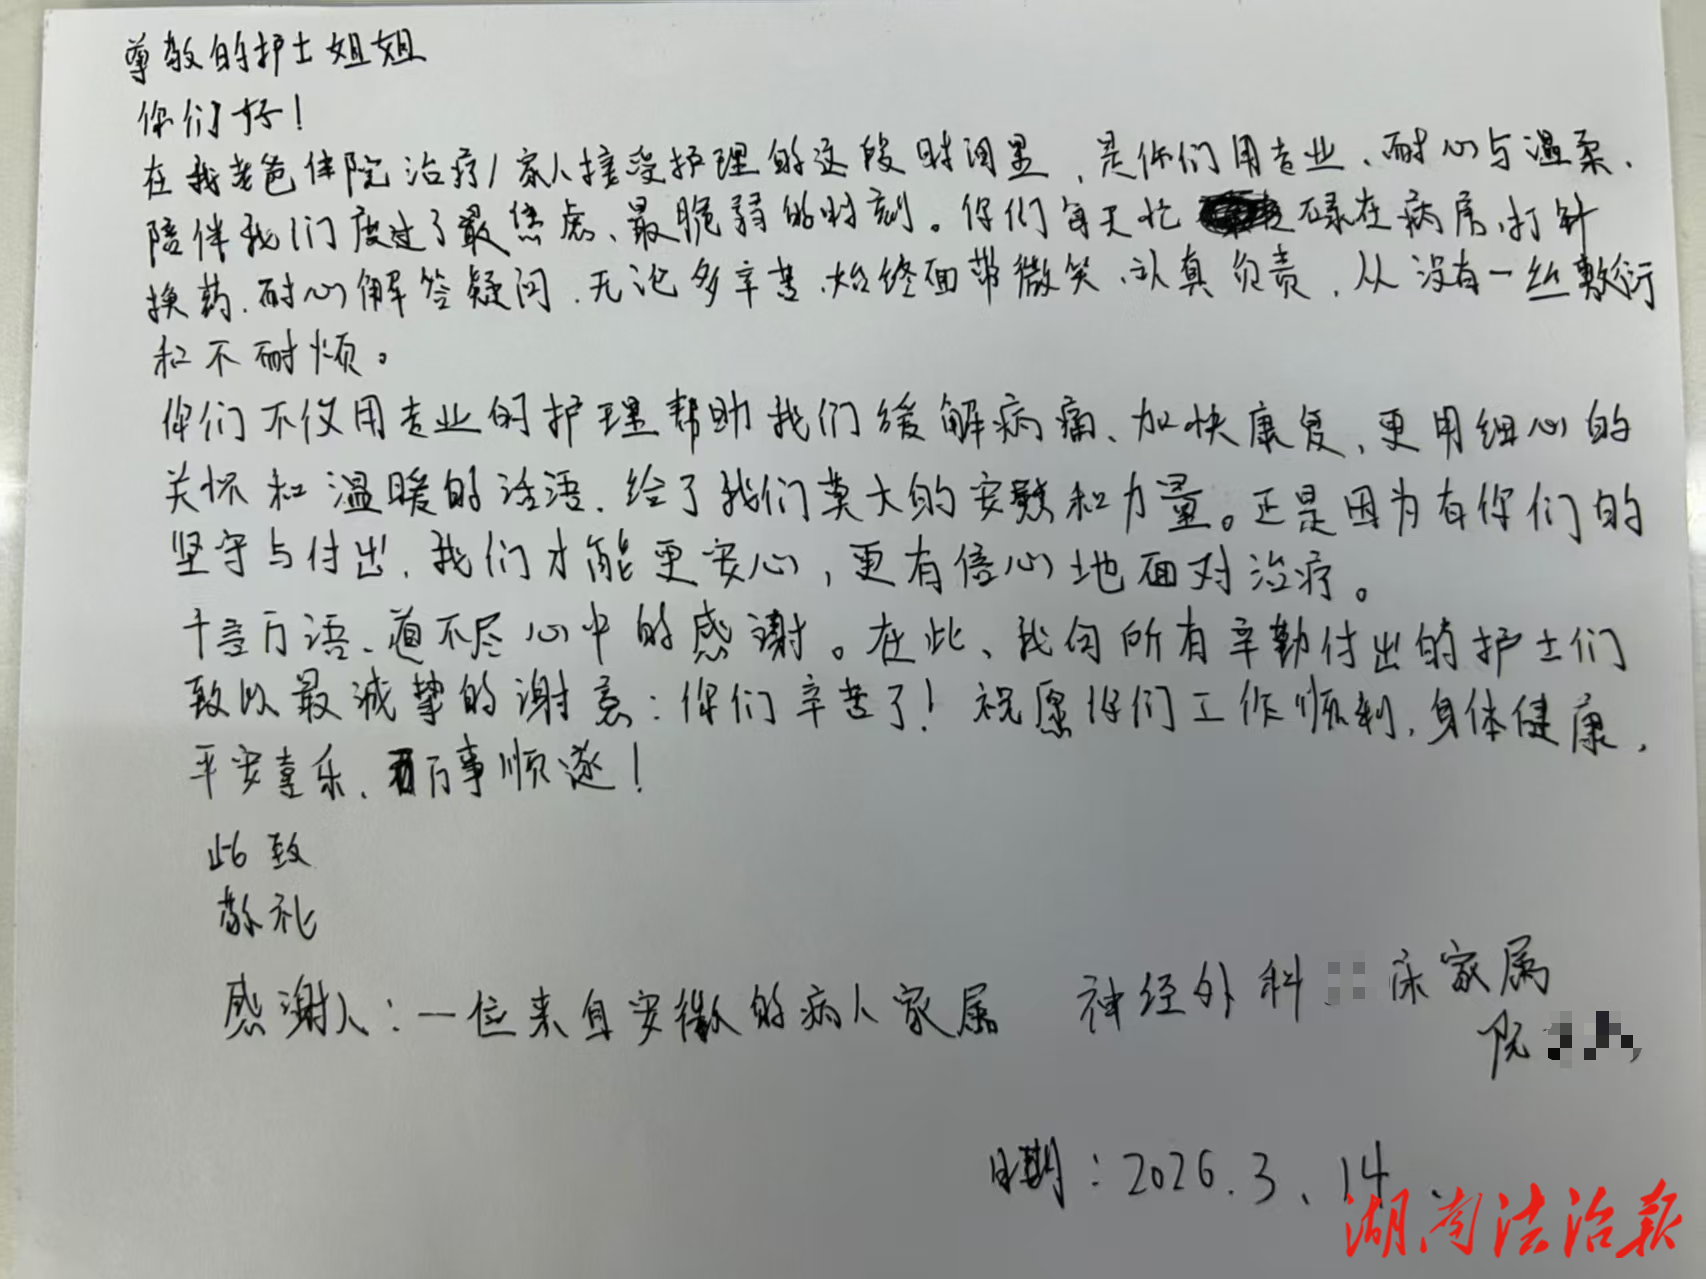 尊敬的护士姐姐
你们好！
在我老爸住院治疗/家人接受护理的这段时间里，是你们用专业、耐心与温柔，
陪伴我们度过了最焦虑、最脆弱的时刻。你们每天忙碌在病房，打针
换药，耐心解答疑问，无论多辛苦，始终面带微笑，认真负责，从没有一丝敷衍
和不耐烦。
你们不仅用专业的护理帮助我们缓解病痛、加快康复，更用细心的
关怀和温暖的话语，给了我们莫大的安慰和力量。正是因为有你们的
坚守与付出，我们才能更安心，更有信心地面对治疗。
千言万语，道不尽心中的感谢。在此、我向所有辛勤付出的护士们
致以最诚挚的谢意：你们辛苦了！祝愿你们工作顺利，身体健康，
平安喜乐、万事顺遂！
此致
敬礼
感谢人：一位来自安徽的病人家属 神经外科 床家属
阮
日期：2026.3、14
湖南法治报